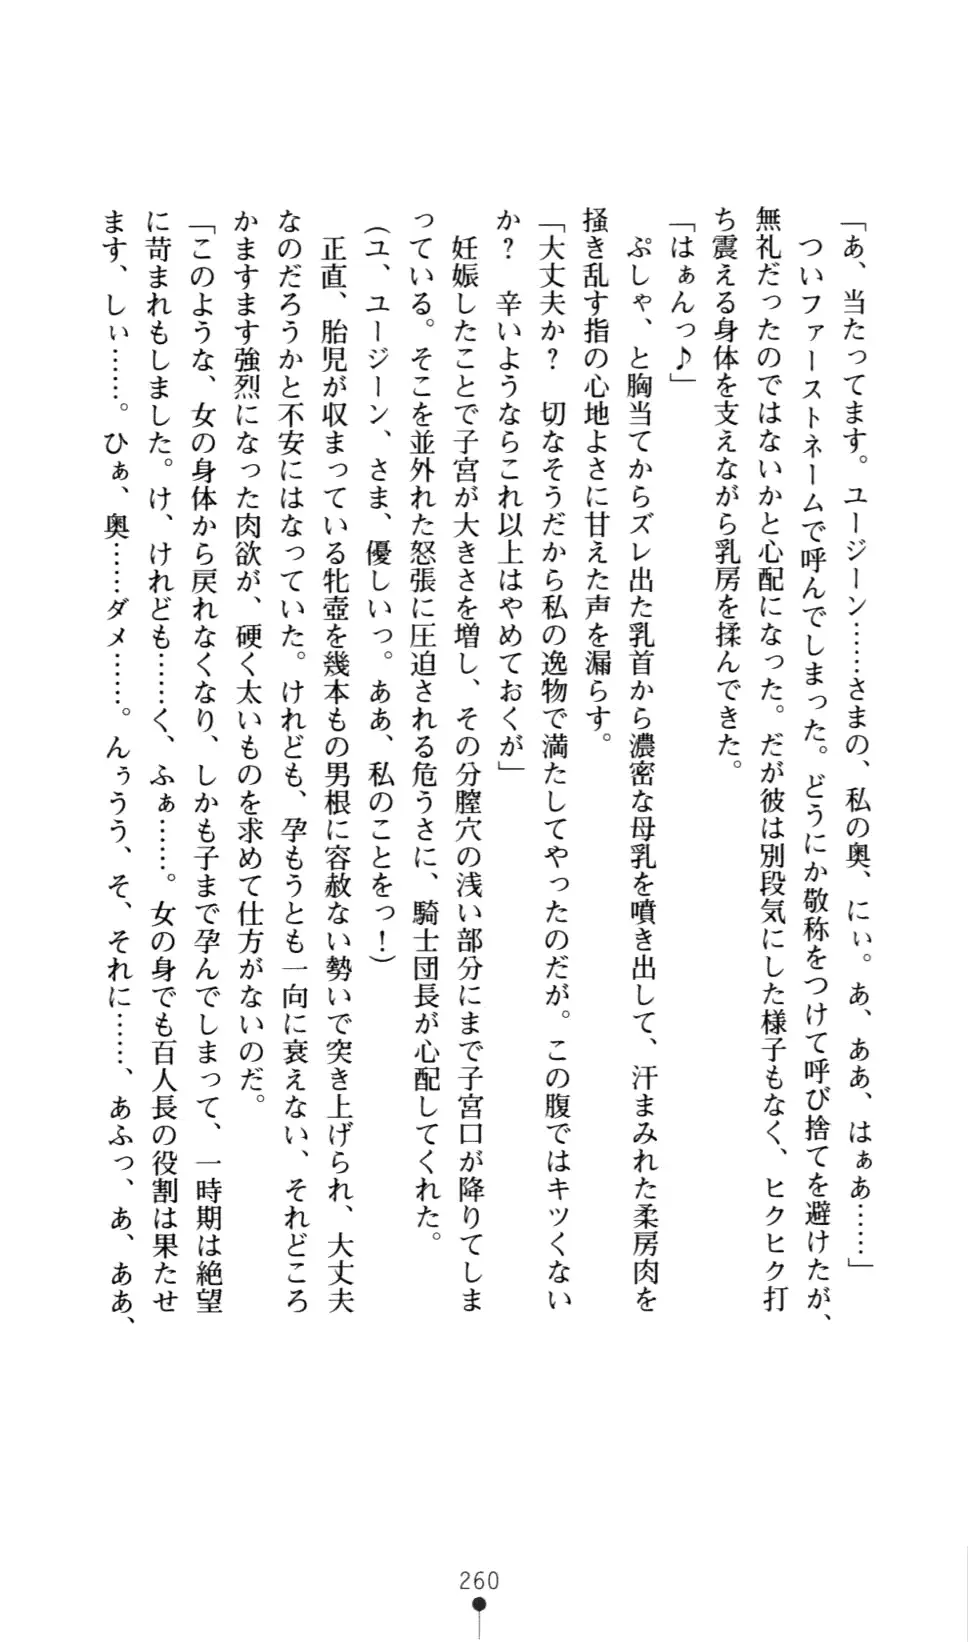 「あ、当たってます。ユージーン……さまの、私の奥、にぃ。あ、ああ、はぁあ……」
　ついファーストネームで呼んでしまった。どうにか敬称をつけて呼び捨てを避けたが、
無礼だったのではないかと心配になった。だが彼は別段気にした様子もなく、ヒクヒク打
ち震える身体を支えながら乳房を揉んできた。
「はぁんっ♪」
　ぷしゃ、と胸当てからズレ出た乳首から濃密な母乳を噴き出して、汗まみれた柔房肉を
掻き乱す指の心地よさに甘えた声を漏らす。
「大丈夫か？　切なそうだから私の逸物で満たしてやったのだが。この腹ではキツくない
か？　辛いようならこれ以上はやめておくが」
　妊娠したことで子宮が大きさを増し、その分膣穴の浅い部分にまで子宮口が降りてしま
っている。そこを並外れた怒張に圧迫される危うさに、騎士団長が心配してくれた。
（ユ、ユージーン、さま、優しいっ。ああ、私のことをっ！）
　正直、胎児が収まっている牝壺を幾本もの男根に容赦ない勢いで突き上げられ、大丈夫
なのだろうかと不安にはなっていた。けれども、孕もうとも一向に衰えない、それどころ
かますます強烈になった肉欲が、硬く太いものを求めて仕方がないのだ。
「このような、女の身体から戻れなくなり、しかも子まで孕んでしまって、一時期は絶望
に苛まれもしました。け、けれども……く、ふぁ……。女の身でも百人長の役割は果たせ
ます、しぃ……。ひぁ、奥……ダメ……。んぅうう、そ、それに……、あふっ、あ、ああ、
260